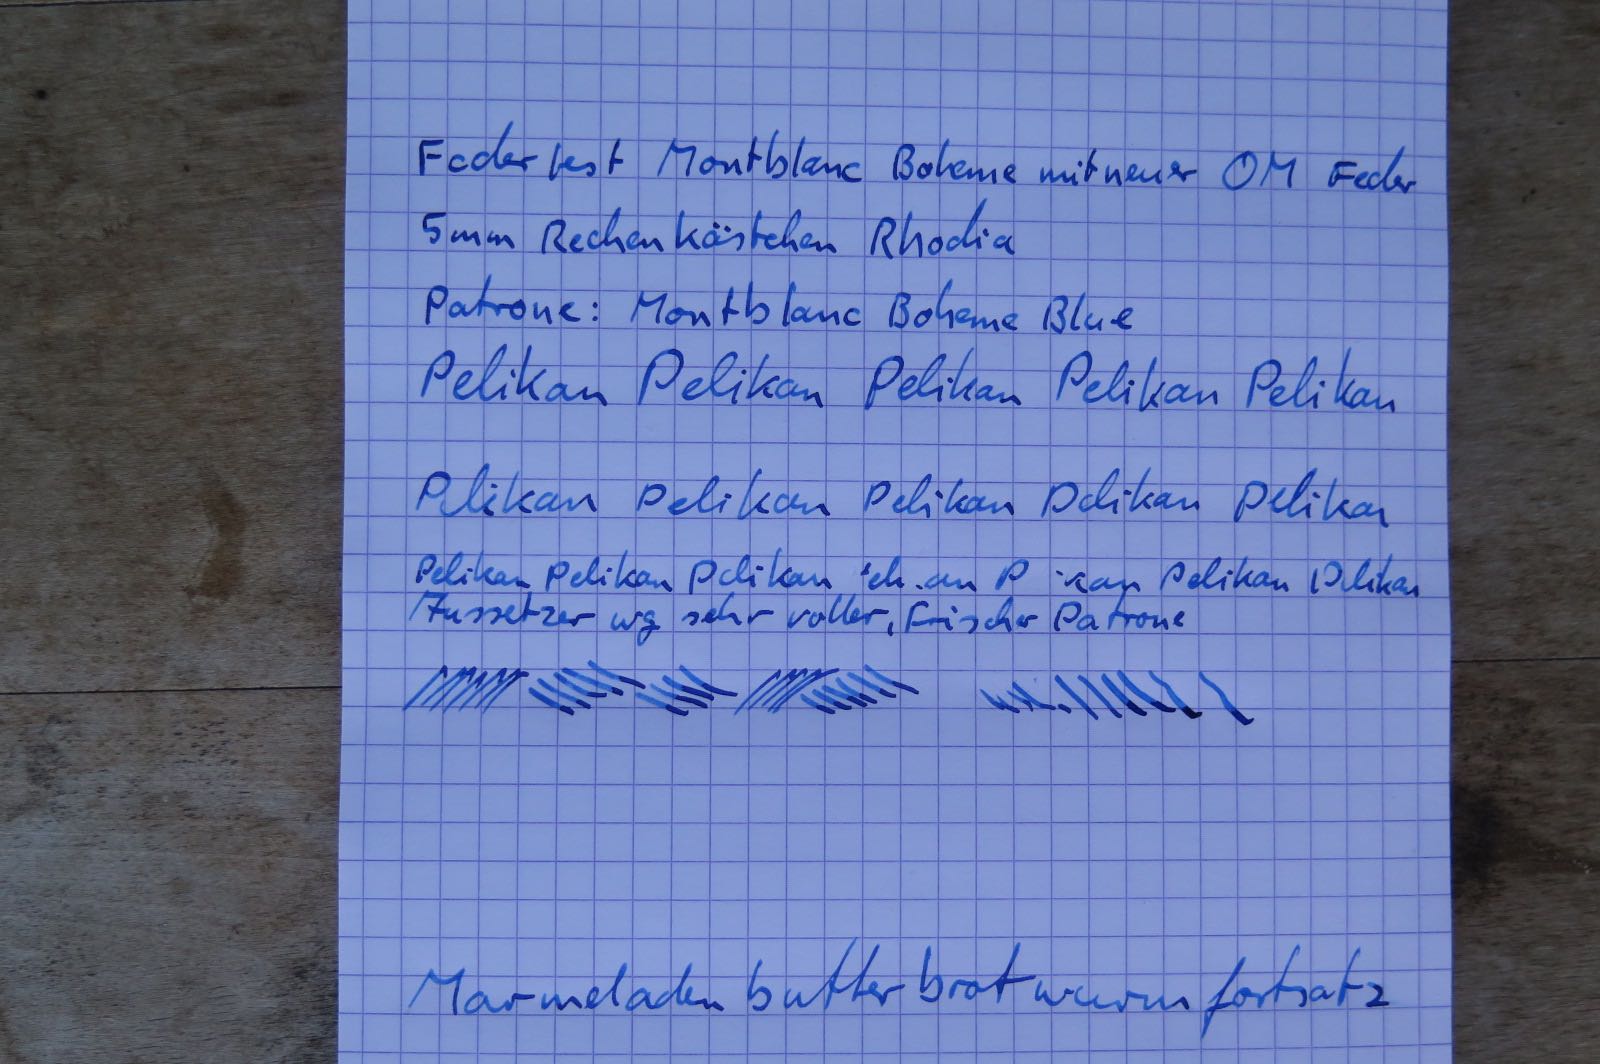 Federtest Montblanc Boheme mit neuer OM Feder
5mm Rechenkästchen Rhodia
Patrone: Montblanc Boheme Blue
Pelikan Pelikan Pelikan Pelikan Pelikan
Pelikan Pelikan Pelikan Pelikan Pelikan
Pelikan Pelikan Pelikan Pelikan Pelikan
Aussetzer wg sehr voller, frischer Patrone
Marmeladenbutterbrotwurmfortsatz